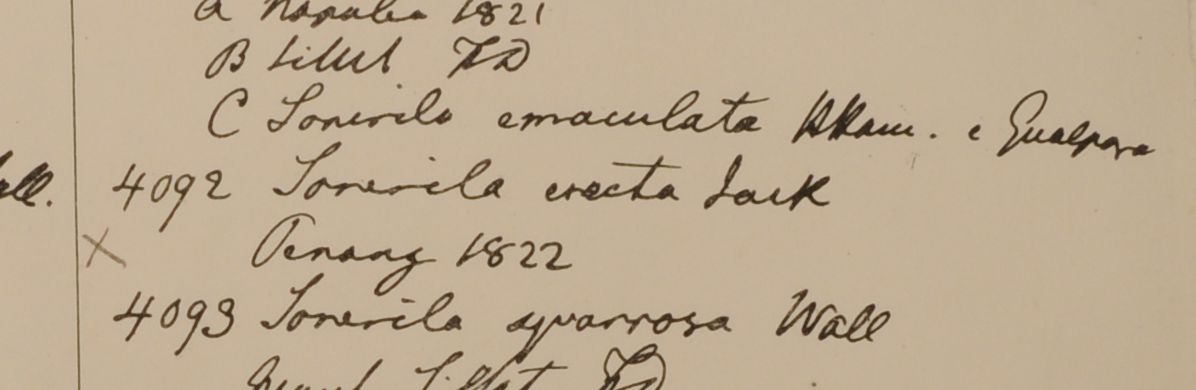 a Napalia 1821
B Sillet FD
C Sonerila emaculata HHam. e Gualpara
all.
4092 Sonerila erecta Jack
Penang 1822
4093 Sonerila squarrosa Wall
Sillet FD